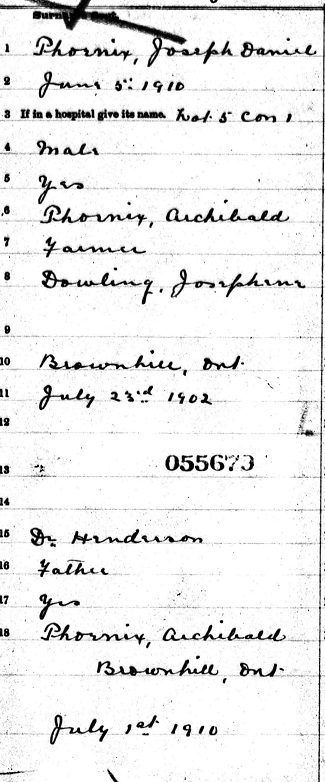 Surname first.
1 Phoenix, Joseph Daniel
2 June 5th 1910
3 If in a hospital give its name. Lot 5 Con 1
4 Male
5 Yes
6 Phoenix, Archibald
7 Farmer
8 Dowling, Josephine
9
10 Brownhill, Ont
11 July 23rd 1902
12
13 055673
14
15 Dr Henderson
16 Father
17 Yes
18 Phoenix, Archibald
Brownhill, Ont
July 1st 1910